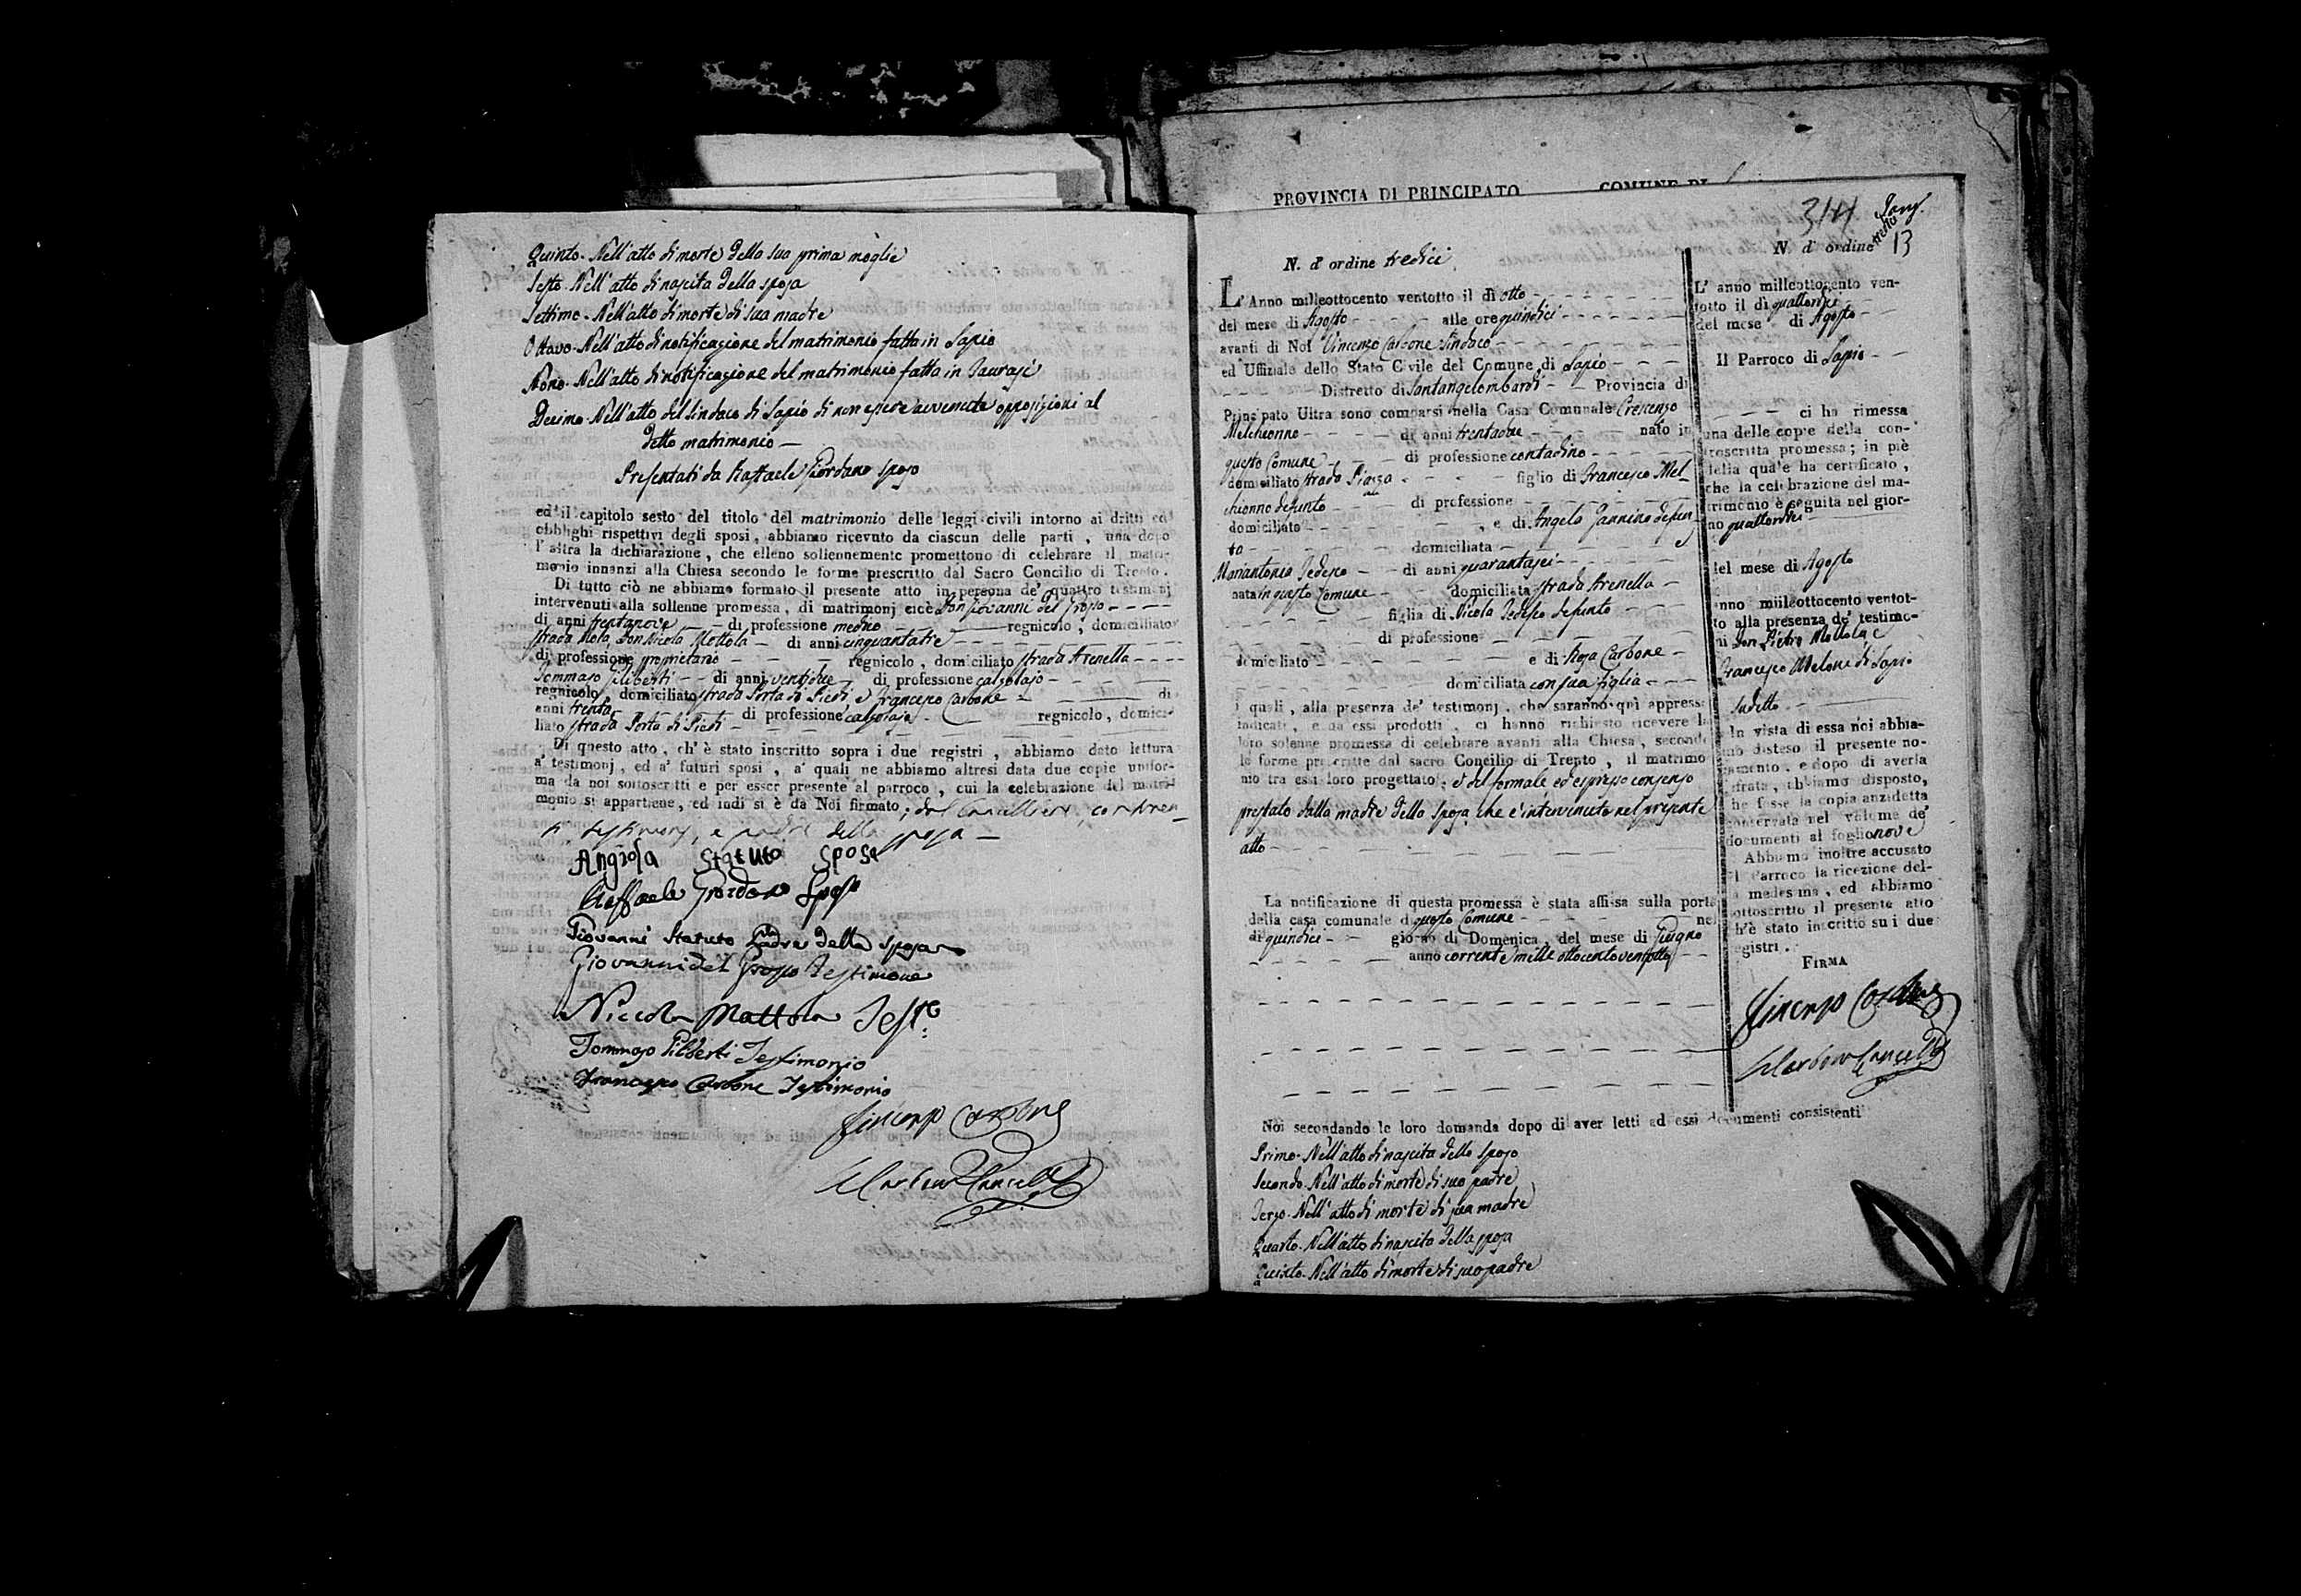 Quinto. Nell'atto di morte della sua prima moglie
Sesto. Nell'atto di nascita della sposa
Settimo. Nell'atto di morte di sua madre
Ottavo. Nell'atto di notificazione del matrimonio fatta in Lapio
Nono. Nell'atto di notificazione del matrimonio fatta in Taurasi
Decimo. Nell'atto del Sindaco di Lapio di non essere avvenuta opposizioni al
detto matrimonio —
Presentati da Raffaele Giordano sposo
ed il capitolo sesto del titolo del matrimonio delle leggi civili intorno ai dritti ed
obblighi rispettivi degli sposi, abbiamo ricevuto da ciascun delle parti, una dopo
l'altra la dichiarazione, che elleno sollennemente promettono di celebrare il matri-
monio innanzi alla Chiesa secondo le forme prescritto dal Sacro Concilio di Trento.
Di tutto ciò ne abbiamo formato il presente atto in persona de' quattro testimonj
intervenuti alla sollenne promessa, di matrimonj cioè Don Giovanni del Grosso
di anni trentanove di professione medico regnicolo, domiciliato
strada Nola, Don Nicola Mottola di anni cinquantatre
di professione proprietario regnicolo, domiciliato strada Arenella
Tommaso Filiberti di anni ventidue di professione calzolajo
regnicolo domiciliato strada Porta di Piedi e Francesco Carbone di
anni trenta di professione calzolajo regnicolo, domici-
liato strada Porta di Piedi
Di questo atto, ch'è stato inscritto sopra i due registri, abbiamo dato lettura
a' testimonj, ed a' futuri sposi, a' quali ne abbiamo altresì data due copie unifor-
ma da noi sottoscritti e per esser presente al parroco, cui la celebrazione del matri-
monio si appartiene, ed indi si è da Noi firmato; dal Cancelliere,
testimonj, e padre della sposa —
Angiola Statuto Sposa
Raffaele Giordano Sposo
Giovanni Statuto Padre della sposa
Giovanni del Grosso Testimone
Niccola Mottola Teste
Tommaso Filiberti Testimonio
Francesco Carbone Testimonio
Vincenzo Carbone
PROVINCIA DI PRINCIPATO COMUNE DI
314
N. d'ordine tredici
L'Anno milleottocento ventotto il dì otto
del mese di Agosto alle ore quindici
avanti di Noi Vincenzo Carbone Sindaco
ed Uffiziale dello Stato Civile del Comune di Lapio
Distretto di Santangelombardi Provincia di
Principato Ultra sono comparsi nella Casa Comunale Crescenzo
Melchionno di anni trentadue nato in
questo Comune di professione contadino
domiciliato strada Piazza figlio di Francesco Mel-
chionno defunto di professione
domiciliato , e di Angela Jannino defun
ta domiciliata e
Mariantonia Tedesco di anni quarantasei
nata in questo Comune domiciliata strada Arenella
figlia di Nicola Tedesco defunto
di professione
domiciliato e di Rosa Carbone
domiciliata con sua figlia
i quali, alla presenza de' testimonj, che saranno qui appresso
indicati, e da essi prodotti, ci hanno richiesto ricevere la
loro solenne promessa di celebrare avanti alla Chiesa, secondo
le forme prescritte dal sacro Concilio di Trento, il matrimo
nio tra essi loro progettato; e del formale, ed espresso consenso
prestato dalla madre della sposa che è intervenuta nel presente
atto
La notificazione di questa promessa è stata affissa sulla porta
della casa comunale di questo Comune nel
dì quindici giorno di Domenica, del mese di Giugno
anno corrente mille ottocento ventotto
Noi secondando le loro domanda dopo di aver letti ad essi documenti consistenti
Primo. Nell'atto di nascita dello sposo
Secondo. Nell'atto di morte di suo padre
Terzo. Nell'atto di morte di sua madre
Quarto. Nell'atto di nascita della sposa
Quinto. Nell'atto di morte di suo padre
N. d'ordine 13
L' anno milleottocento ven-
totto il dì quattordici
del mese di Agosto
Il Parroco di Lapio
ci ha rimessa
una delle copie della con-
troscritta promessa; in piè
della quale ha certificato,
che la celebrazione del ma-
trimonio è seguita nel gior-
no quattordici
del mese di Agosto
anno milleottocento ventot-
to alla presenza de' testimo-
ni Don Pietro Mottola e
Francesco Melone di Lapio
sudetto
In vista di essa noi abbia-
mo disteso il presente no-
tamento, e dopo di averla
cifrata, abbiamo disposto,
che fosse la copia anzidetta
conservata nel volume de'
documenti al foglio nove
Abbiamo inoltre accusato
al Parroco la ricezione del-
la medesima, ed abbiamo
sottoscritto il presente atto
ch'è stato inscritto su i due
registri.
FIRMA
Vincenzo Carbone